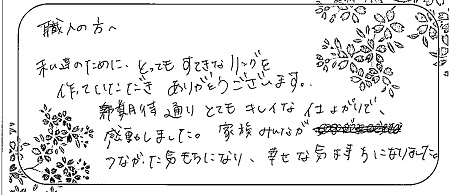 職人の方へ
私達のために、とってもすてきなリングを
作っていただき ありがとうございます。
期待通り とても キレイな 仕上がりで、
感動しました。家族みんなが
つながった気もちになり、幸せな気持ちになりました。